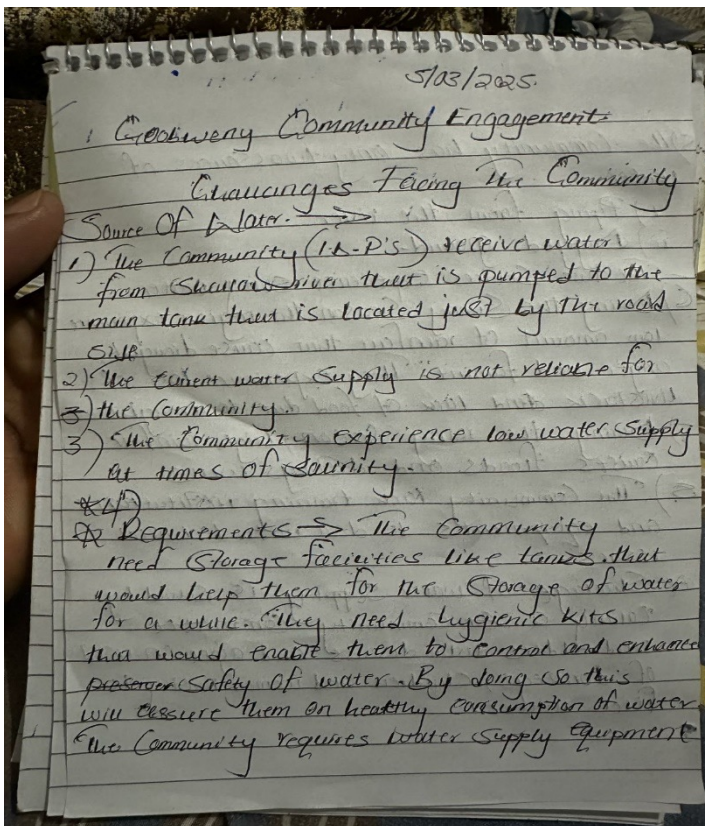 5/03/2025.
Goobweny Community Engagement
Challanges Facing The Community
Source Of Water.
1) The Community (I.D.P's) receive water
from river that is pumped to the
main tank that is located just by the road
side
2) The current water supply is not reliable for
the Community.
3) The Community experience low water supply
at times of
4)
Requirements → The Community
need storage facilities like tanks that
would help them for the storage of water
for a while. They need hygienic kits
that would enable them to control and enhance
safety of water. By doing so this
will assure them on healthy consumption of water
The Community requires water supply equipment